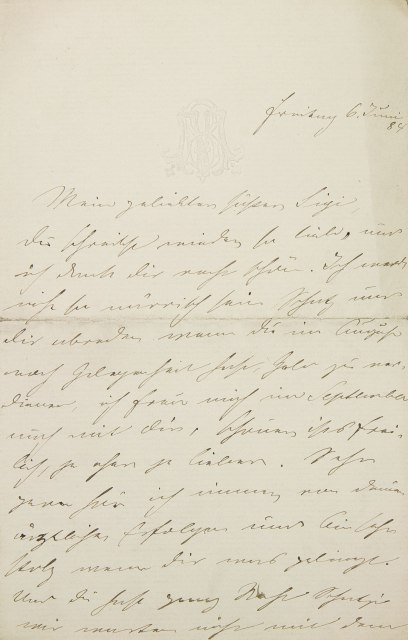 MB
Freitag 6. Juni 84
Mein geliebter süßer Sigi,
Du schreibst wieder so lieb, und
ich danke dir recht schön. Ich werde
nicht so närrisch sein Schatz und
dir abreden wenn du im August
noch Gelegenheit hast, Geld zu ver-
dienen, ich freue mich im September
auch mit dir, schöner ists frei-
lich, je eher je lieber. Sehr
gerne höre ich immer von deinen
ärztlichen Erfolgen und bin sehr
stolz wenn dir was gelingt.
Und du hast ganz Recht Schatzi
wir warten nicht mit dem